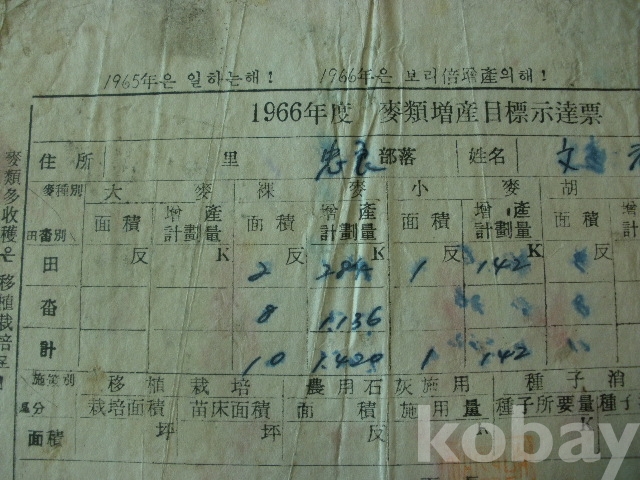 1965年은 일하는해! 1966年은 보리倍增產의해!
1966年度 麥類增産目標示達票
住所 里 部落 姓名 文
麥種別 大麥 裸麥 小麥 胡
田畓別 面積 增産計劃量 面積 增産計劃量 面積 增産計劃量 面積 增計
反 K 反 K 反 K 反
田 2 284 1 142
畓 8 1.136
計 10 1.420 1 142
施策別 移植栽培 農用石灰施用 種子消
區分 栽培面積 苗床面積 面積 施用量 種子所要量 種子
面積 坪 坪 反 K K
麥類多收穫은 移植栽培로!
kobay